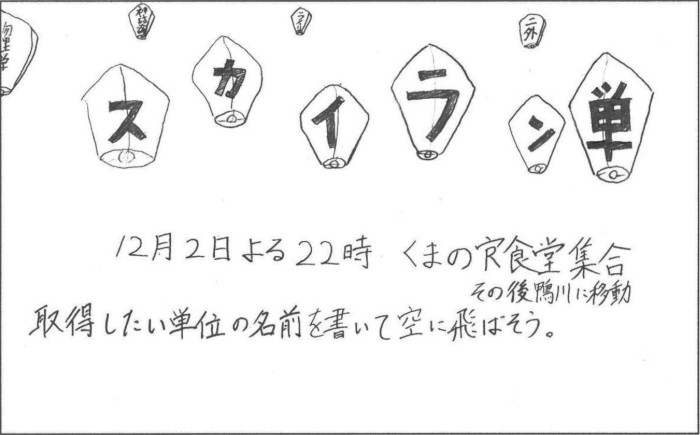 物理学
神話論
二外
スカイラン単
12月2日よる22時 くまの寮食堂集合
その後鴨川に移動
取得したい単位の名前を書いて空に飛ばそう。